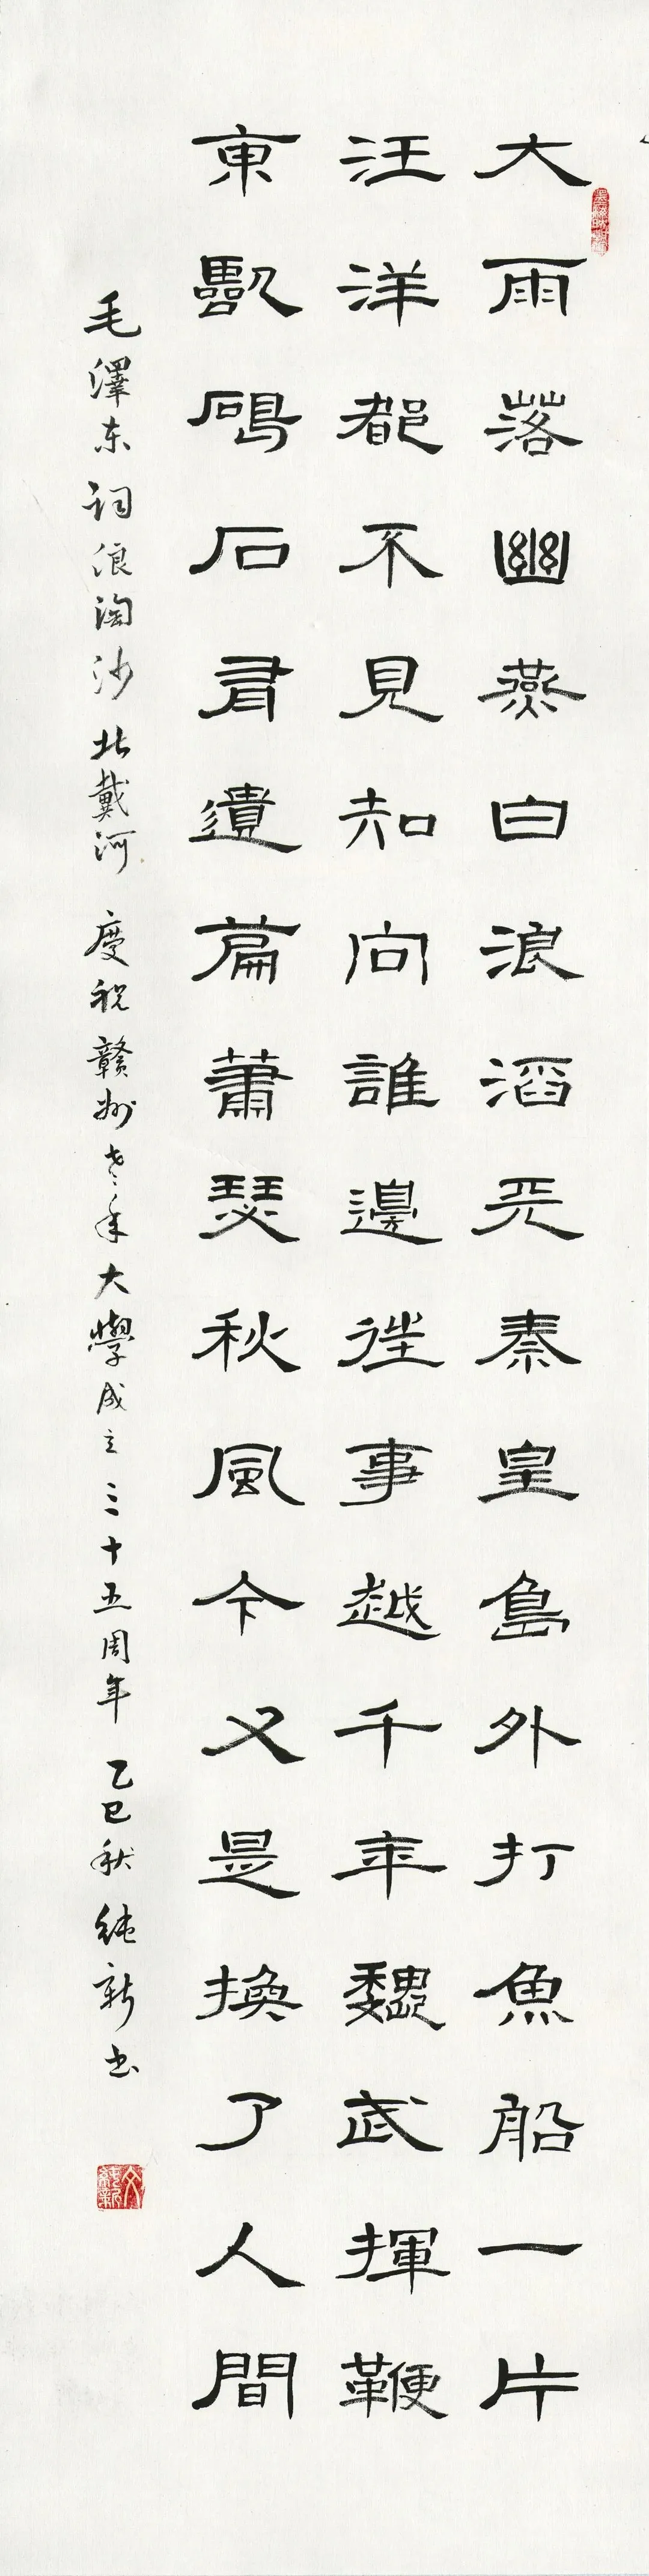 大雨落幽燕白浪滔天秦皇島外打魚船一片
汪洋都不見知向誰邊往事越千年魏武揮鞭
東臨碣石有遺篇蕭瑟秋風今又是換了人間
毛澤东词浪淘沙北戴河 慶祝赣州老年大學成立三十五周年 乙巳秋 純新书